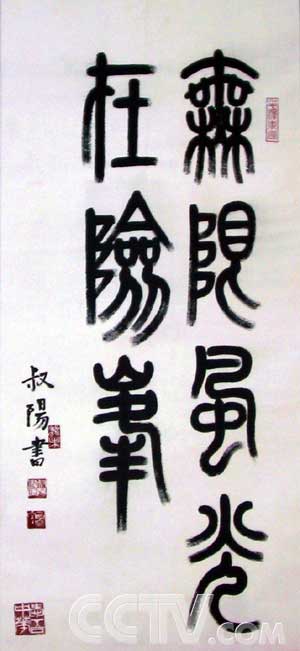 無限風光
在險峯
叔陽書
CCTV.COM